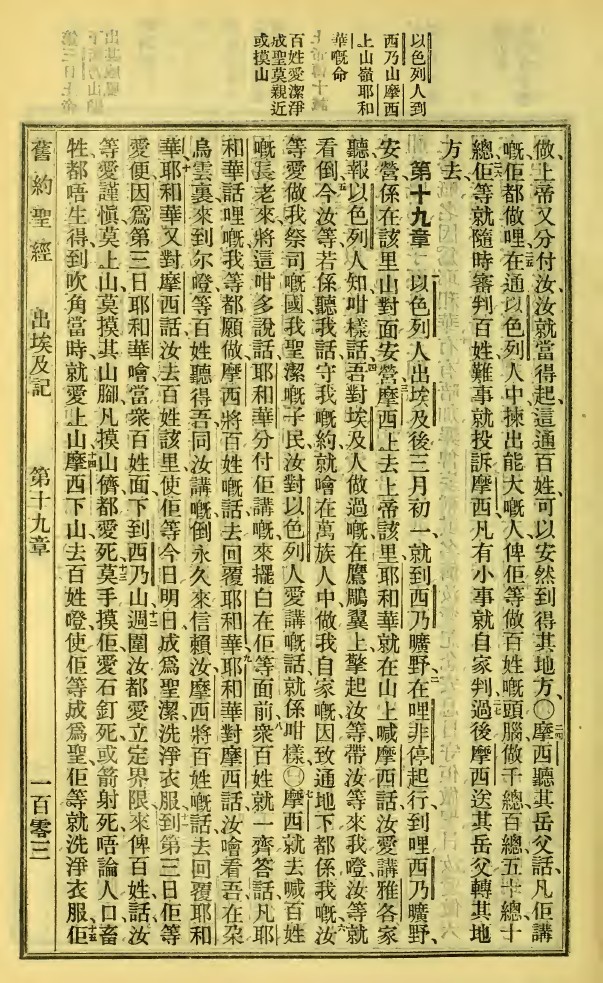 以色列人到
西乃山摩西
上山嶺耶和
華嘅命
百姓愛潔淨
成聖莫親近
或摸山
做上帝又分付汝汝就當得起這通百姓可以安然到得其地方〇二四摩西聽其岳父話凡佢講
嘅佢都做哩二五在通以色列人中揀出能大嘅人俾佢等做百姓嘅頭腦做千總百總五十總十
總二六佢等就隨時審判百姓難事就投訴摩西凡有小事就自家判過二七後摩西送其岳父轉其地
方去
第十九章 一以色列人出埃及後三月初一就到西乃曠野二在哩非停起行到哩西乃曠野
安營係在該里山對面安營三摩西上去上帝該里耶和華就在山上喊摩西話汝愛講雅各家
聽報以色列人知咁樣話四吾對埃及人做過嘅在鷹鵰翼上擎起汝等帶汝等來我嶝汝等就
看倒五今汝等若係聽我話守我嘅約就噲在萬族人中做我自家嘅因致通地下都係我嘅六汝
等愛做我祭司嘅國我聖潔嘅子民汝對以色列人愛講嘅話就係咁樣〇七摩西就去喊百姓
嘅長老來將這咁多說話耶和華分付佢講嘅來擺白在佢等面前八衆百姓就一齊答話凡耶
和華話哩嘅我等都願做摩西將百姓嘅話去回覆耶和華九耶和華對摩西話汝噲看吾在朶
烏雲裏來到尔嶝等百姓聽得吾同汝講嘅倒永久來信賴汝摩西將百姓嘅話去回覆耶和
華十耶和華又對摩西話汝去百姓該里使佢等今日明日成爲聖潔洗淨衣服十一到第三日佢等
愛便因爲第三日耶和華噲當衆百姓面下到西乃山十二週圍汝都愛立定界限來俾百姓話汝
等愛謹慎莫上山莫摸其山腳凡摸山儕都愛死十三莫手摸佢愛石釘死或箭射死唔論人口畜
牲都唔生得到吹角當時就愛上山十四摩西下山去百姓嶝使佢等成爲聖佢等就洗淨衣服十五佢
舊約聖經 出埃及記 第十九章 一百零三